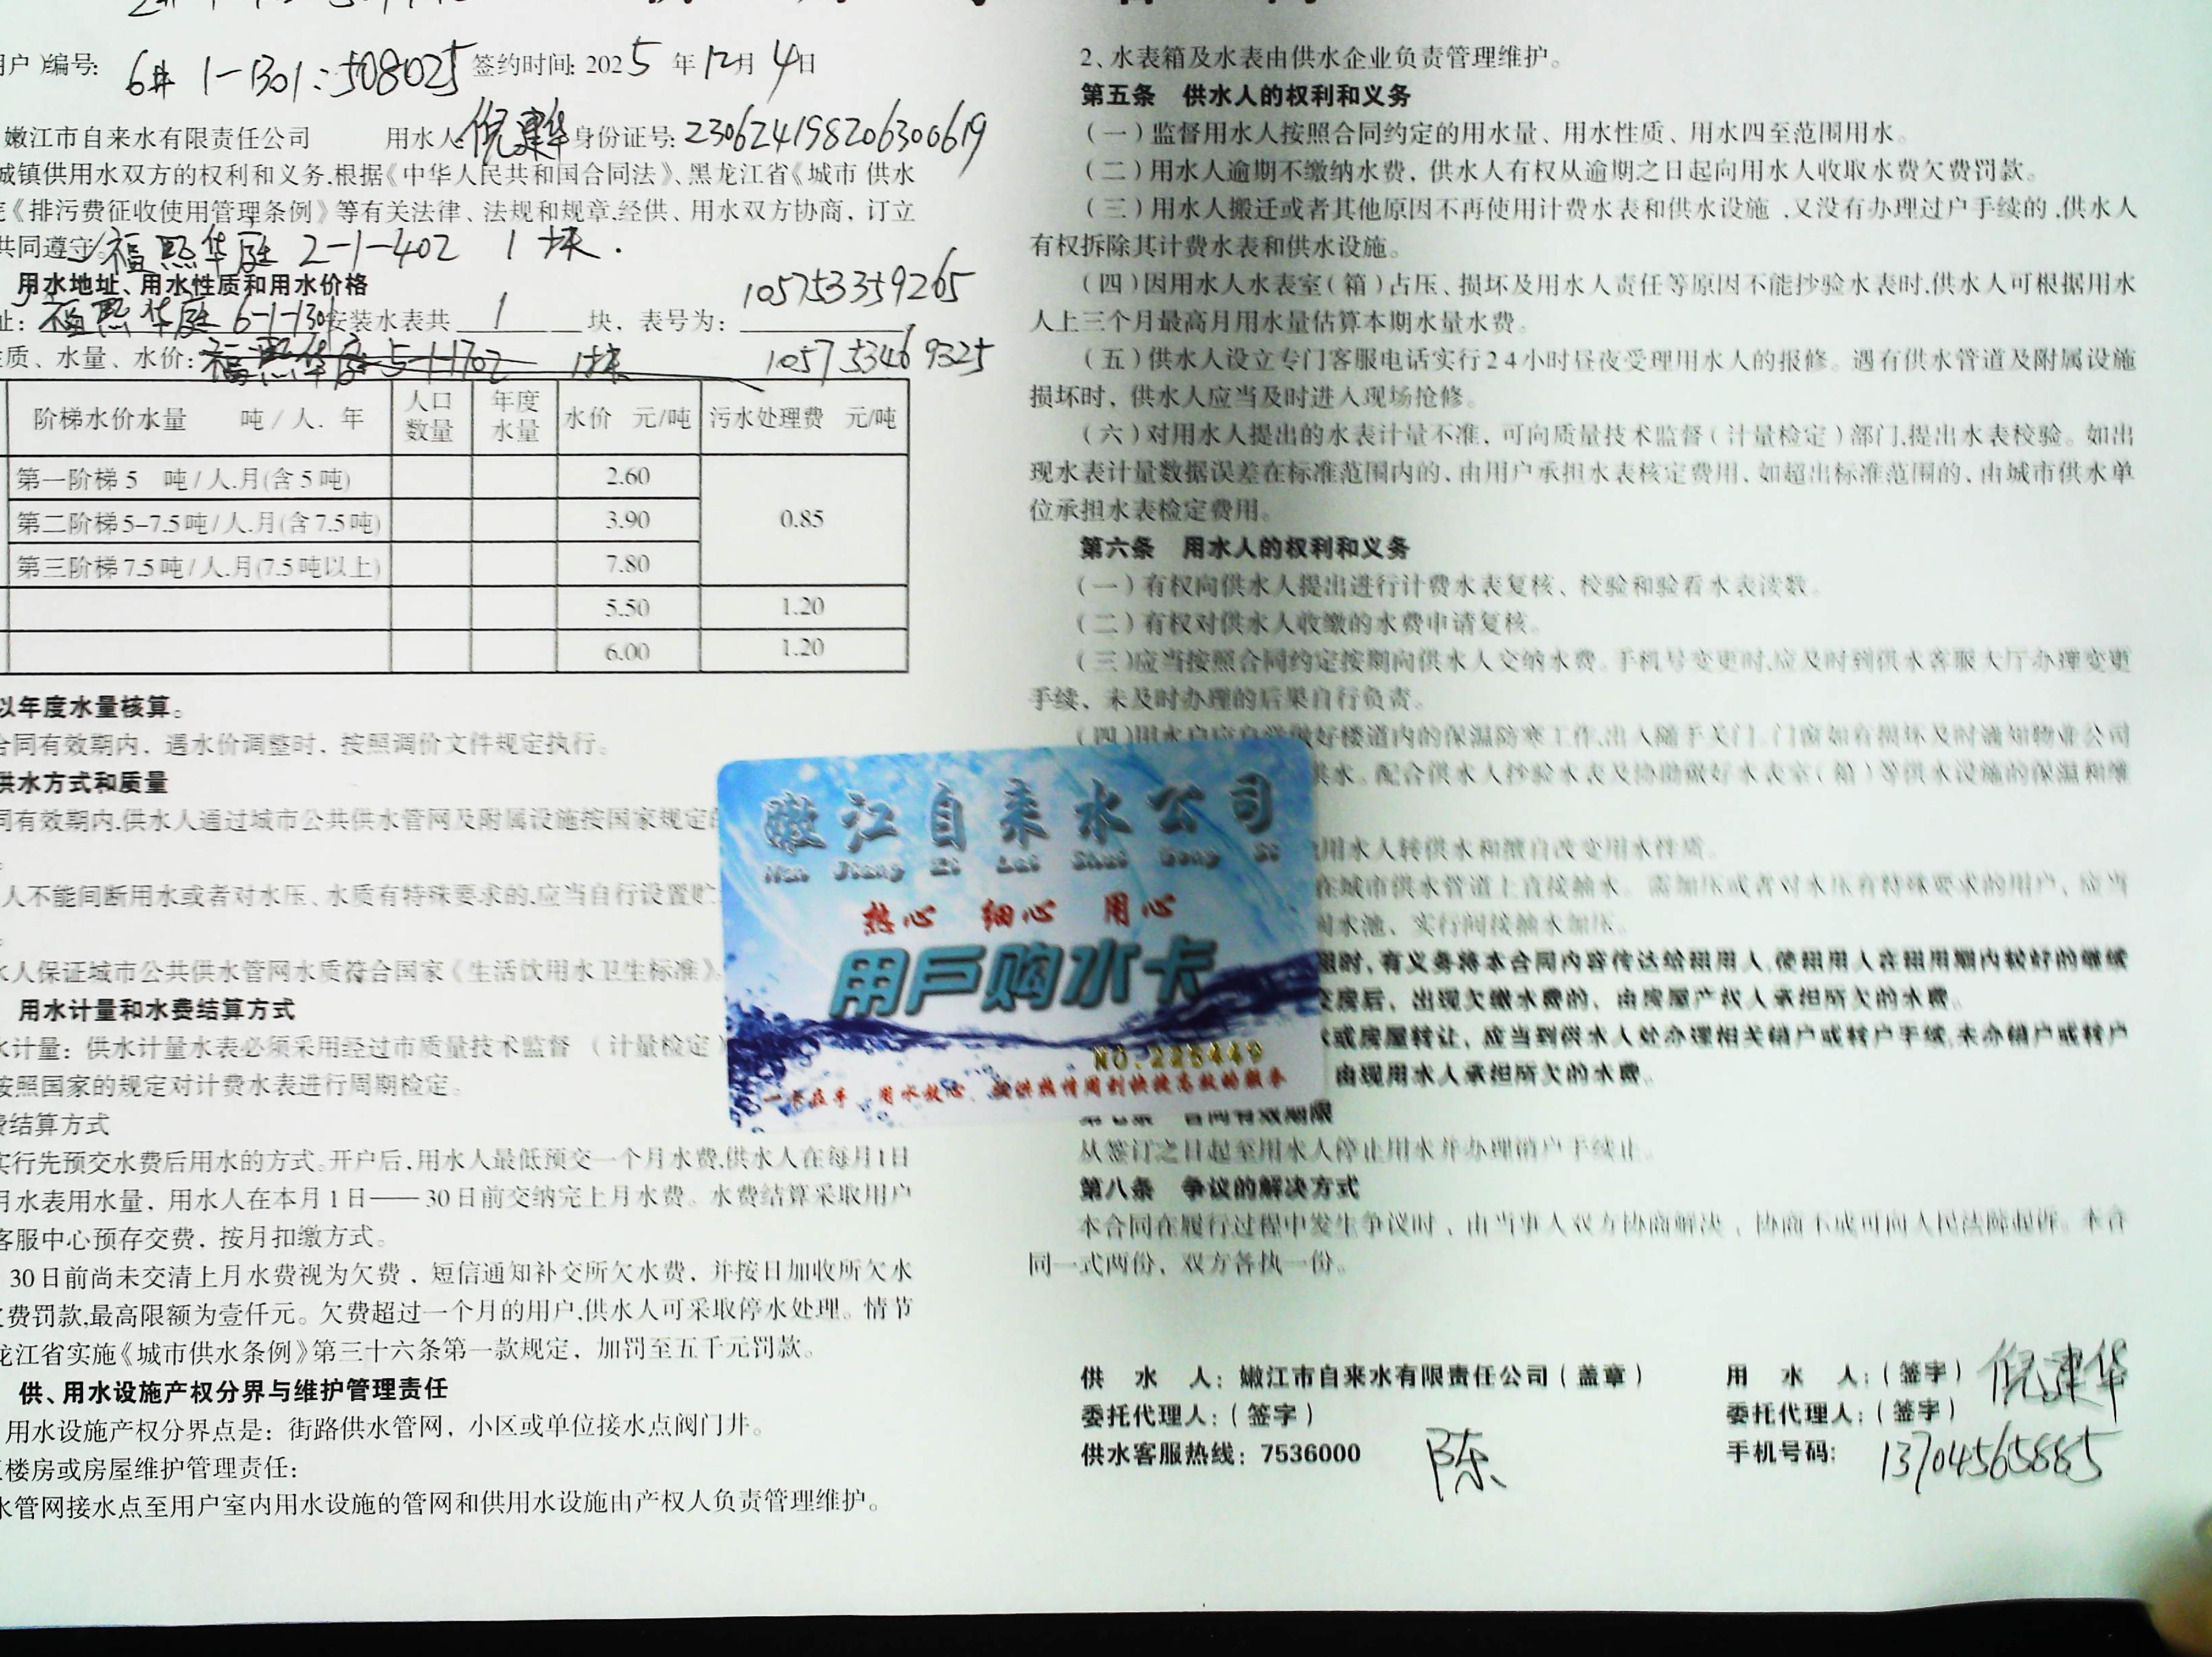 户)编号: 6# 1-1301:508025 签约时间: 2025年12月4日
嫩江市自来水有限责任公司 用水人: 倪建华 身份证号: 230624198206300619
城镇供用水双方的权利和义务,根据《中华人民共和国合同法》、黑龙江省《城市 供水
《排污费征收使用管理条例》等有关法律、法规和规章,经供、用水双方协商，订立
共同遵守。福熙华庭 2-1-402 1块.
用水地址、用水性质和用水价格
105753359265
址: 福熙华庭 6-1-1301 安装水表共 1 块，表号为:
质、水量、水价: 福熙华庭 5-1-1702 1块 105753469325
阶梯水价水量 吨/人.年 人口数量 年度水量 水价 元/吨 污水处理费 元/吨
第一阶梯 5 吨/人.月(含5吨) 2.60
第二阶梯 5-7.5吨/人.月(含7.5吨) 3.90 0.85
第三阶梯 7.5吨/人.月(7.5吨以上) 7.80
5.50 1.20
6.00 1.20
以年度水量核算。
合同有效期内，遇水价调整时，按照调价文件规定执行。
供水方式和质量
同有效期内,供水人通过城市公共供水管网及附属设施按国家规定的
人不能间断用水或者对水压、水质有特殊要求的,应当自行设置贮
水人保证城市公共供水管网水质符合国家《生活饮用水卫生标准》
用水计量和水费结算方式
水计量：供水计量水表必须采用经过市质量技术监督（计量检定）
按照国家的规定对计费水表进行周期检定。
费结算方式
实行先预交水费后用水的方式。开户后,用水人最低预交一个月水费,供水人在每月1日
月水表用水量，用水人在本月1日——30日前交纳完上月水费。水费结算采取用户
客服中心预存交费，按月扣缴方式。
30日前尚未交清上月水费视为欠费，短信通知补交所欠水费，并按日加收所欠水
费罚款,最高限额为壹仟元。欠费超过一个月的用户,供水人可采取停水处理。情节
龙江省实施《城市供水条例》第三十六条第一款规定，加罚至五千元罚款。
供、用水设施产权分界与维护管理责任
用水设施产权分界点是：街路供水管网，小区或单位接水点阀门井。
楼房或房屋维护管理责任：
水管网接水点至用户室内用水设施的管网和供用水设施由产权人负责管理维护。
2、水表箱及水表由供水企业负责管理维护。
第五条 供水人的权利和义务
（一）监督用水人按照合同约定的用水量、用水性质、用水四至范围用水。
（二）用水人逾期不缴纳水费，供水人有权从逾期之日起向用水人收取水费欠费罚款。
（三）用水人搬迁或者其他原因不再使用计费水表和供水设施,又没有办理过户手续的,供水人
有权拆除其计费水表和供水设施。
（四）因用水人水表室（箱）占压、损坏及用水人责任等原因不能抄验水表时,供水人可根据用水
人上三个月最高月用水量估算本期水量水费。
（五）供水人设立专门客服电话实行24小时昼夜受理用水人的报修。遇有供水管道及附属设施
损坏时，供水人应当及时进入现场抢修。
（六）对用水人提出的水表计量不准，可向质量技术监督（计量检定）部门,提出水表校验。如出
现水表计量数据误差在标准范围内的，由用户承担水表核定费用，如超出标准范围的，由城市供水单
位承担水表检定费用。
第六条 用水人的权利和义务
（一）有权向供水人提出进行计费水表复核、校验和验看水表读数。
（二）有权对供水人收缴的水费申请复核。
（三）应当按照合同约定按期向供水人交纳水费。手机号变更时,应及时到供水客服大厅办理变更
手续，未及时办理的后果自行负责。
（四）用水户应自觉做好楼道内的保温防寒工作,出入随手关门。门窗如有损坏及时通知物业公司
供水。配合供水人抄验水表及协助做好水表室（箱）等供水设施的保温和维
用水人转供水和擅自改变用水性质。
在城市供水管道上直接抽水。需加压或者对水压有特殊要求的用户，应当
水池，实行间接抽水加压。
时，有义务将本合同内容传达给租用人,使租用人在租用期内较好的继续
房后，出现欠缴水费的，由房屋产权人承担所欠的水费。
或房屋转让，应当到供水人处办理相关销户或转户手续,未办销户或转户
由现用水人承担所欠的水费。
第七条 合同有效期限
从签订之日起至用水人停止用水并办理销户手续止。
第八条 争议的解决方式
本合同在履行过程中发生争议时，由当事人双方协商解决，协商不成可向人民法院起诉。本合
同一式两份，双方各执一份。
供 水 人：嫩江市自来水有限责任公司（盖章）
委托代理人：（签字）
供水客服热线：7536000 陈
用 水 人：（签字）倪建华
委托代理人：（签字）
手机号码: 13704565885
嫩江自来水公司
Nen Jiang Zi Lai Shui Gong Si
热心 细心 用心
用户购水卡
NO:225449
一卡在手，用水放心，提供热情周到快捷高效的服务